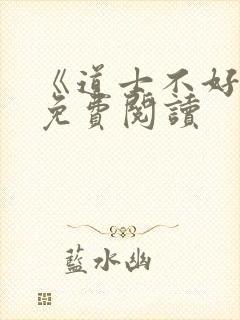 《道士不好
免費閱讀
藍水幽